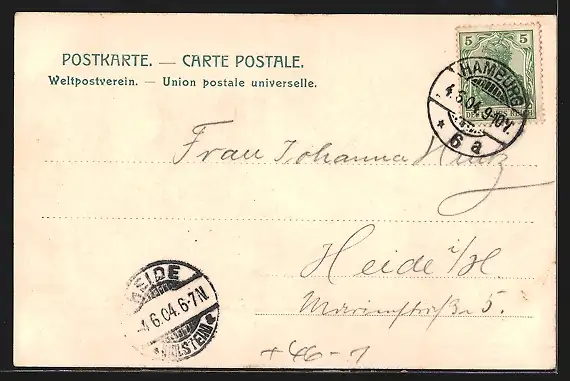 POSTKARTE. — CARTE POSTALE.
Weltpostverein. — Union postale universelle.
5 5
HAMBURG
4.6.04.9-10V.
* 6a
Frau Johanna
Heide i/H.
5.
HEIDE
4.6.04.6-7N.
* HOLSTEIN *
+46-1